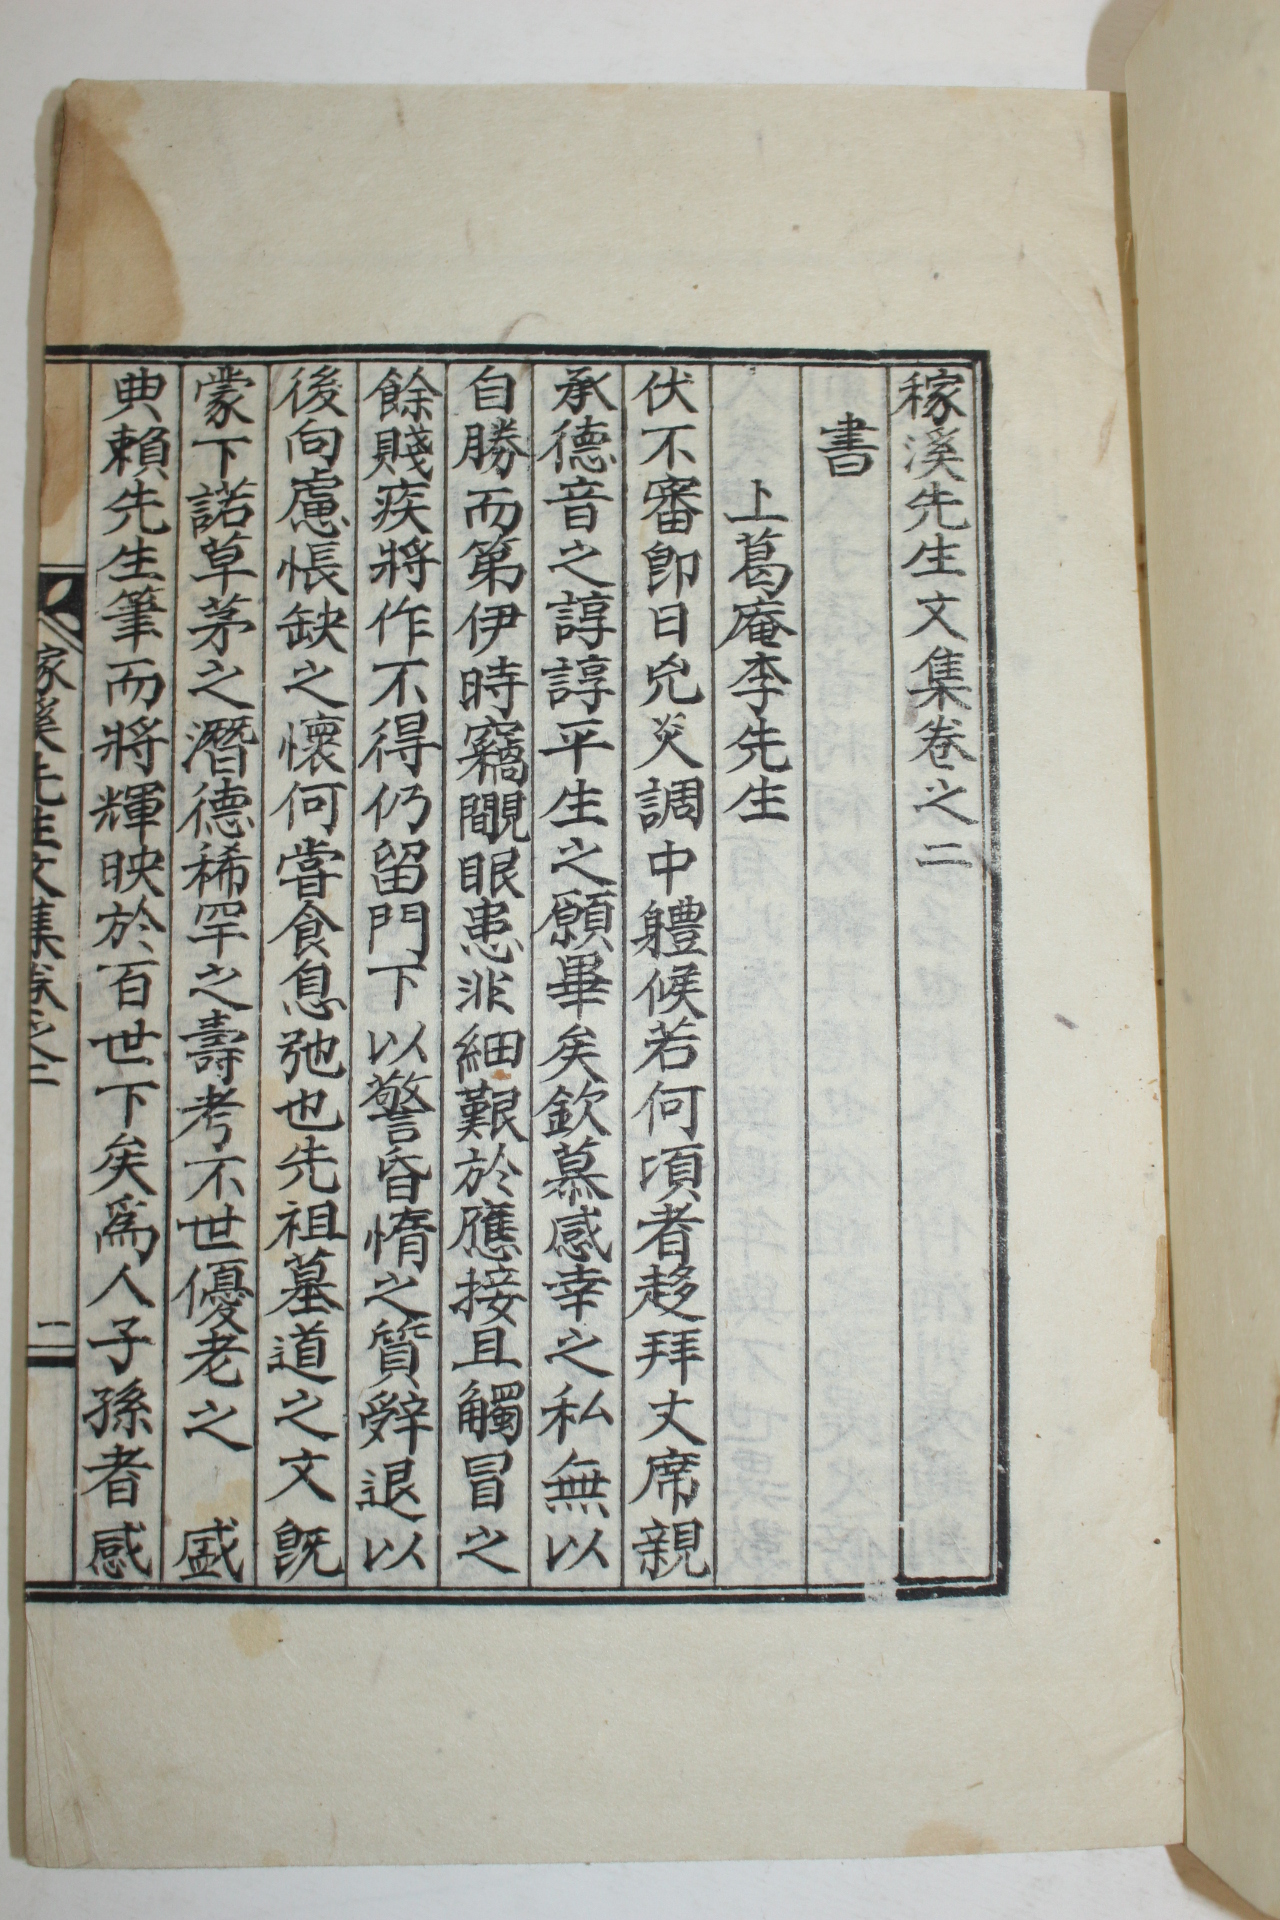 稼溪先生文集卷之二
書
上葛庵李先生
伏不審卽日兇炎調中體候若何頃者趍拜丈席親
承德音之諄諄平生之願畢矣欽慕感幸之私無以
自勝而第伊時竊覵眼患非細艱於應接且觸冒之
餘賤疾將作不得仍留門下以警昏惰之質辭退以
後向慮悵缺之懷何嘗食息弛也先祖墓道之文旣
蒙下諾草茅之潛德稀罕之壽考不世優老之 盛
典賴先生筆而將輝映於百世下矣爲人子孫者感
稼溪先生文集卷之二
一